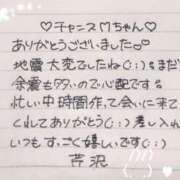 ♡チャンスMちゃん♡
ありがとうございました
地震大変でしたね(;;)まだ
余震も多いので心配です
忙しい中時間作って会いに来て
くれてありがとう(;;)差し入れ
いつもすごく嬉しいです(;;)
芹沢